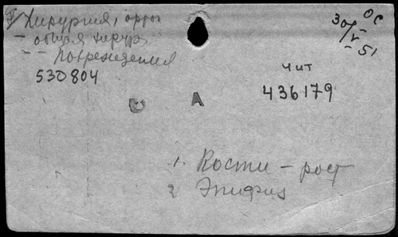 Хирургия, орто
— общая хирур.
— — повреждения
530804
ОС
30/V-51
чит
436179
А
1. Кости — рост
2 Эпифиз